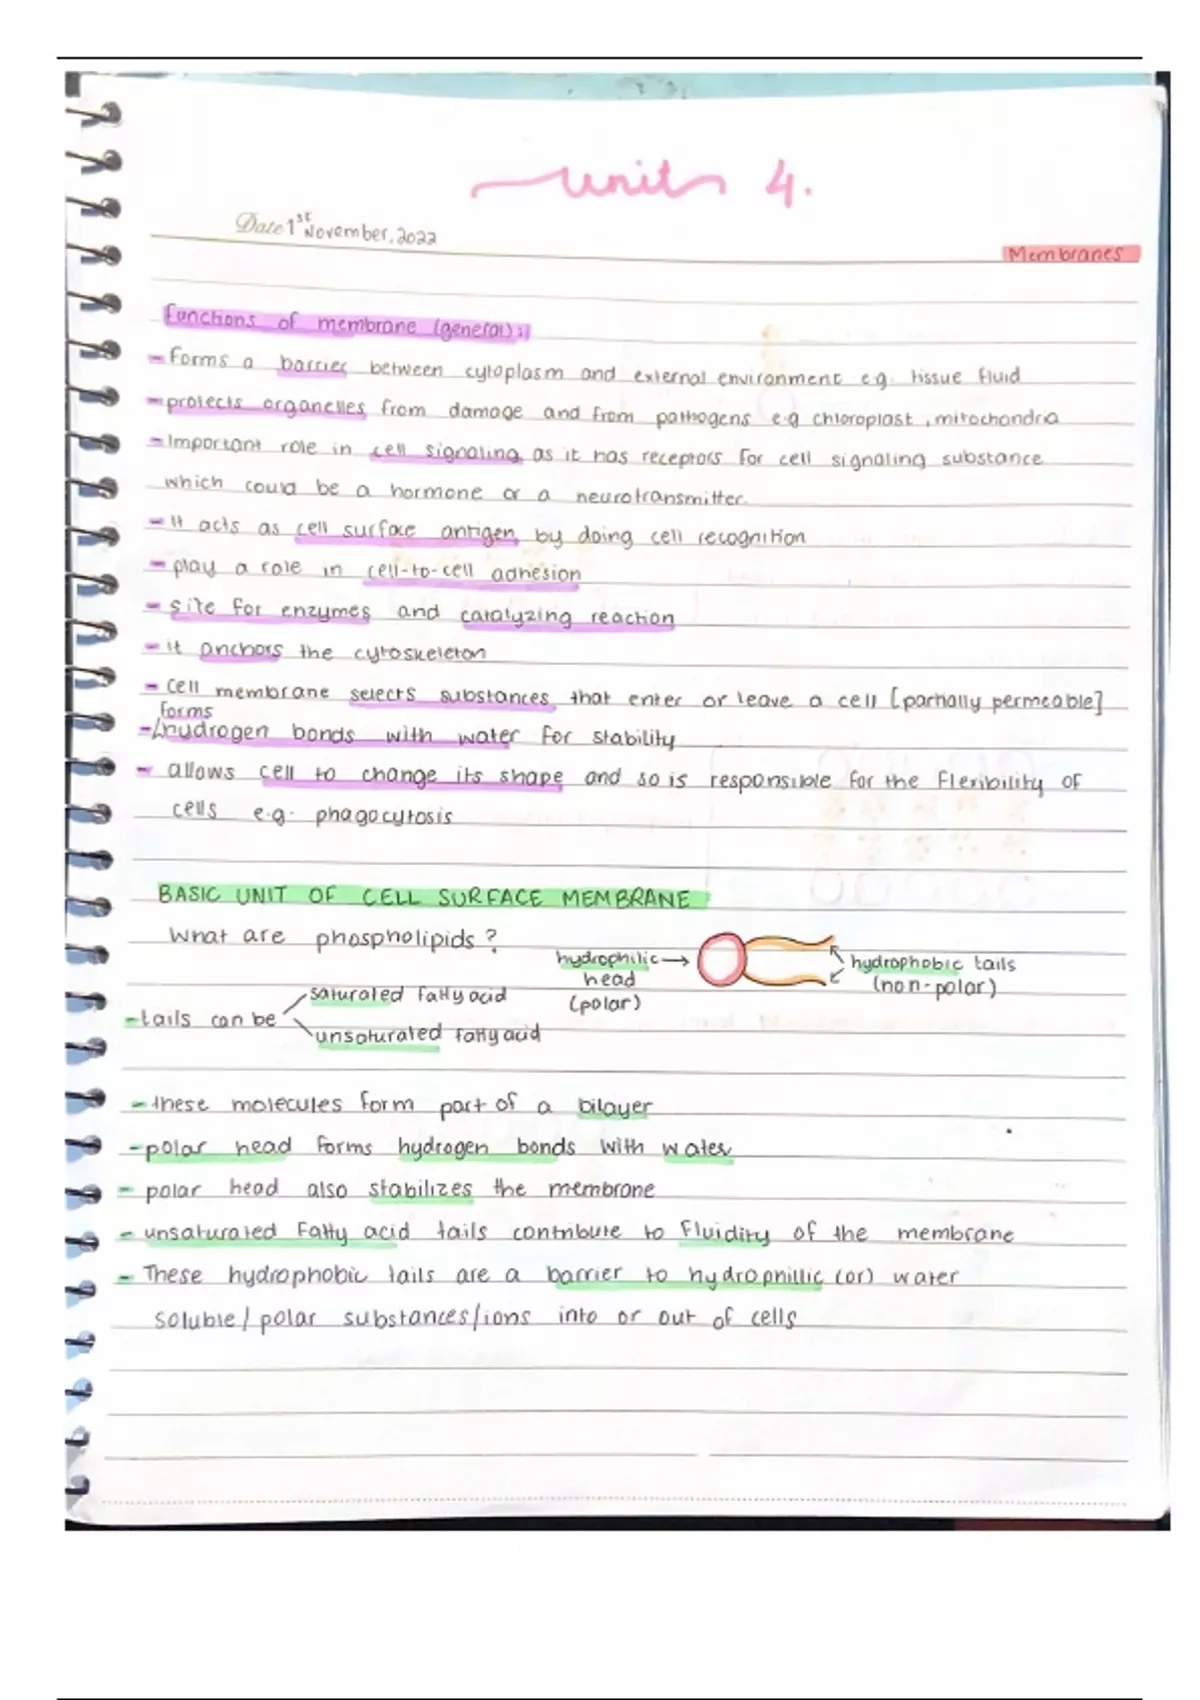 unit 4.
Date 1st November, 2022
Membranes
Functions of membrane (general):
- Forms a barrier between cytoplasm and external environment e.g. tissue fluid
- protects organelles from damage and from pathogens e.g chloroplast, mitochondria
- Important role in cell signaling as it has receptors for cell signaling substance
which could be a hormone or a neurotransmitter.
- It acts as cell surface antigen by doing cell recognition
- play a role in cell-to-cell adhesion
- site for enzymes and catalyzing reaction
- it anchors the cytoskeleton
- cell membrane selects substances that enter or leave a cell [partially permeable]
forms
- hydrogen bonds with water for stability
- allows cell to change its shape and so is responsible for the flexibility of
cells e.g. phagocytosis
BASIC UNIT OF CELL SURFACE MEMBRANE :
What are phospholipids?
hydrophilic → head (polar)
hydrophobic tails (non-polar)
- tails can be
saturated fatty acid
unsaturated fatty acid
- these molecules form part of a bilayer
- polar head forms hydrogen bonds with water
- polar head also stabilizes the membrane
- unsaturated fatty acid tails contribute to fluidity of the membrane
- These hydrophobic tails are a barrier to hydrophillic (or) water
soluble / polar substances/ions into or out of cells